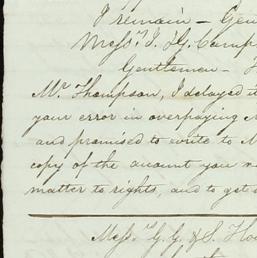 I remain – Gen
Messrs. J. & G. Camp
Gentlemen –
Mr. Thompson, I delayed it
your error in overpaying
and promised to write to M
copy of the amount you
matter to rights, and to get
Messrs. G. G. & S. How